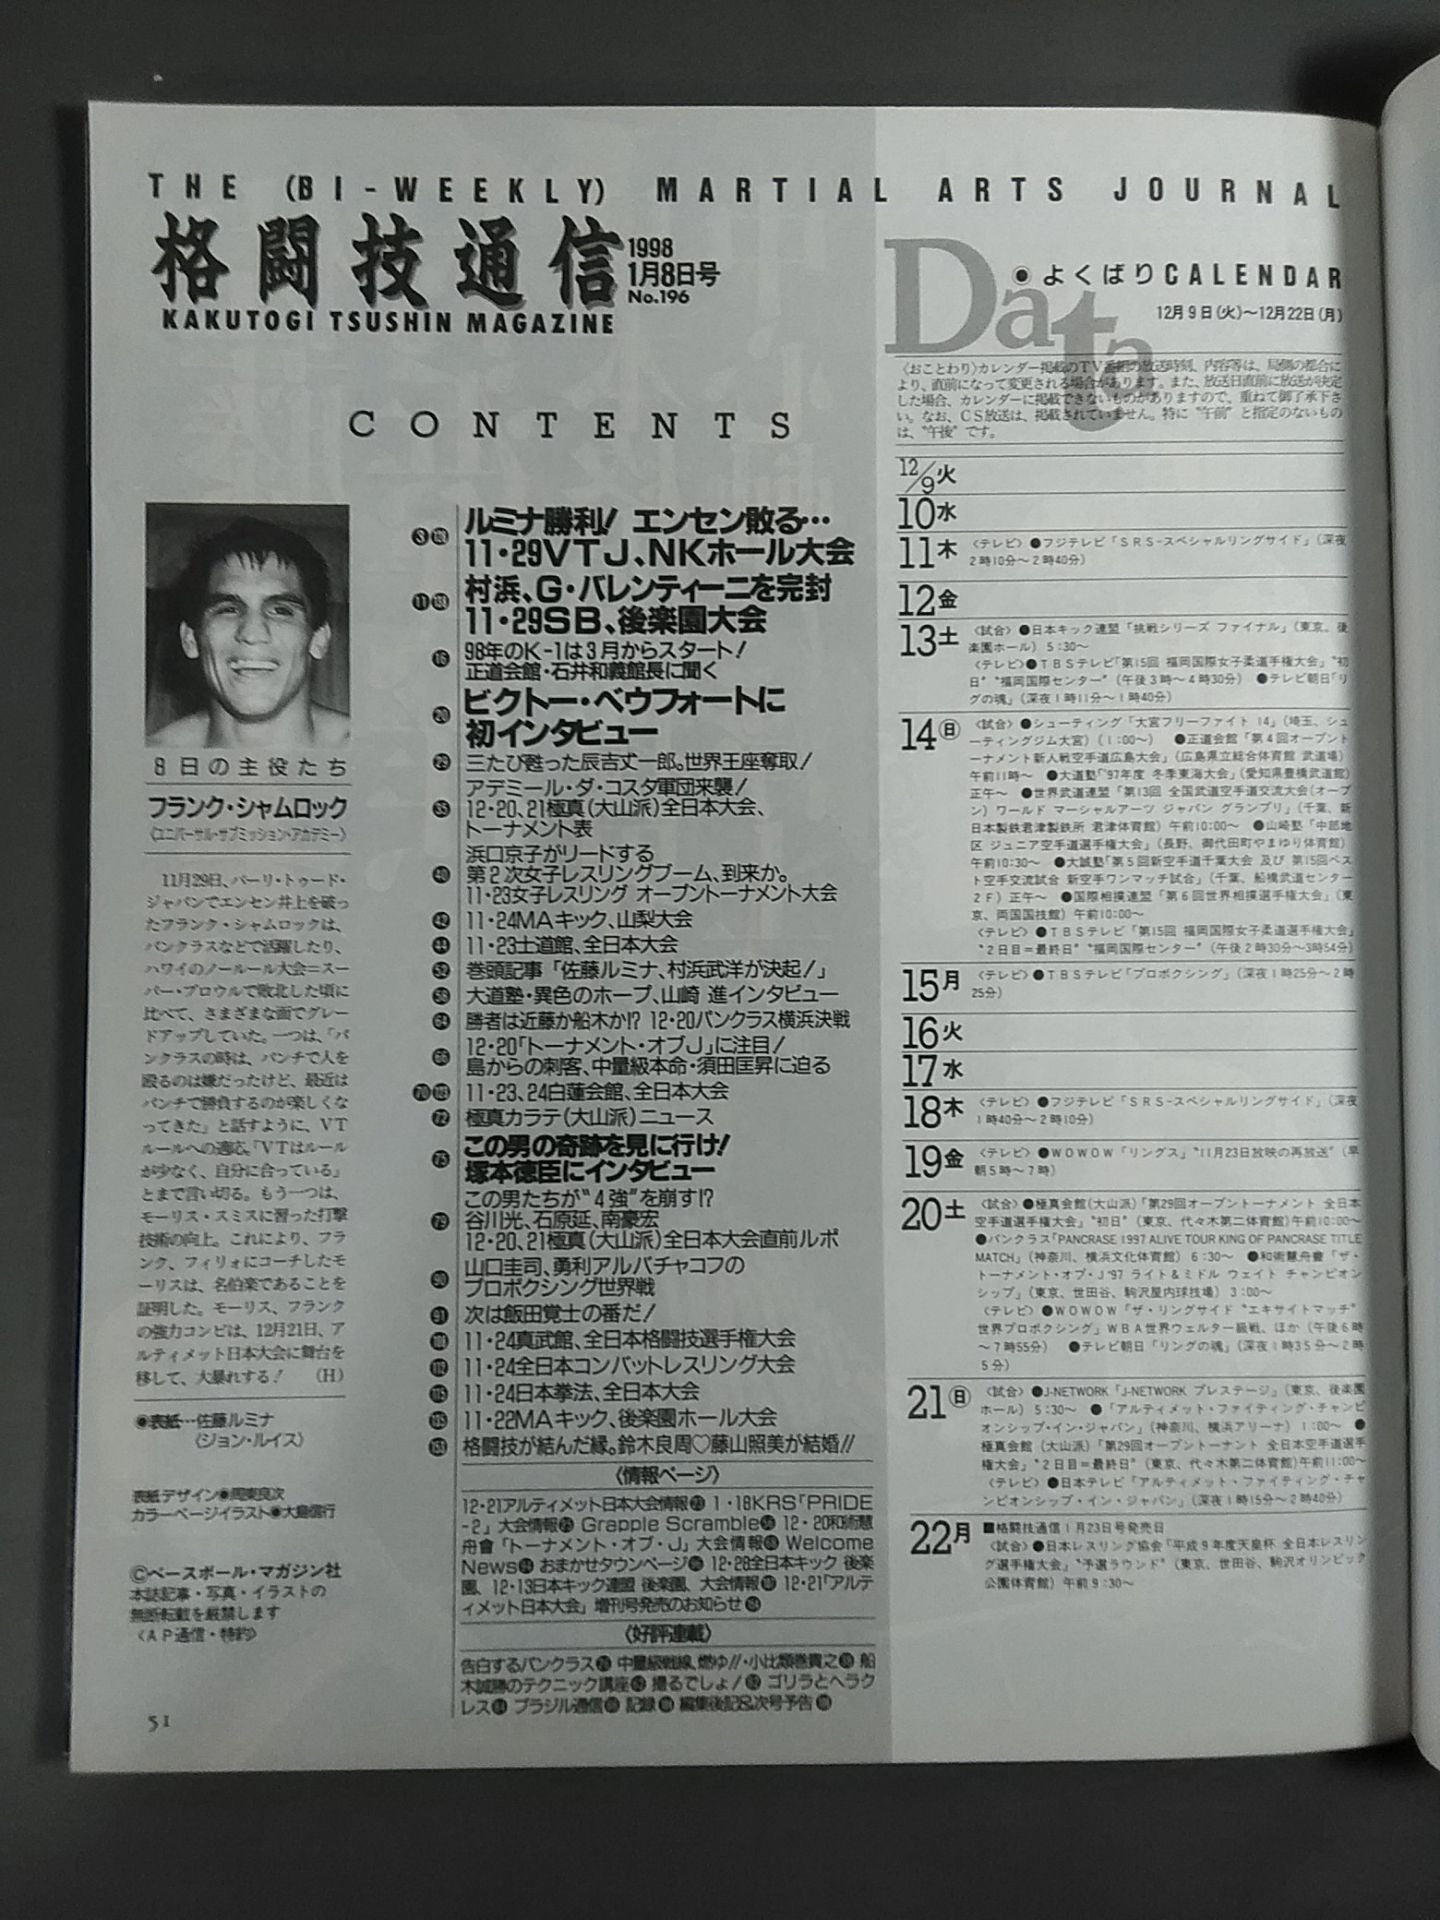 THE (BI-WEEKLY) MARTIAL ARTS JOURNAL
格闘技通信
1998
1月8日号
No.196
KAKUTOGI TSUSHIN MAGAZINE
CONTENTS
8日の主役たち
フランク・シャムロック
〈ユニバーサル・サブミッション・アカデミー〉
11月29日、バーリ・トゥード・
ジャパンでエンセン井上を破っ
たフランク・シャムロックは、
パンクラスなどで活躍したり、
ハワイのノールール大会=スー
パー・ブロウルで敗北した頃に
比べて、さまざまな面でグレー
ドアップしていた。一つは、「パ
ンクラスの時は、パンチで人を
殴るのは嫌だったけど、最近は
パンチで勝負するのが楽しくな
ってきた」と話すように、VT
ルールへの適応。「VTはルール
が少なく、自分に合っている」
とまで言い切る。もう一つは、
モーリス・スミスに習った打撃
技術の向上。これにより、フラ
ンク、フィリォにコーチしたモ
ーリスは、名伯楽であることを
証明した。モーリス、フランク
の強力コンビは、12月21日、ア
ルティメット日本大会に舞台を
移して、大暴れする! (H)
●表紙…佐藤ルミナ
〈ジョン・ルイス〉
表紙デザイン●周東良次
カラーページイラスト●大島信行
©ベースボール・マガジン社
本誌記事・写真・イラストの
無断転載を厳禁します
〈AP通信・特約〉
51
ルミナ勝利! エンセン敗る…
3 11・29VTJ、NKホール大会
村浜、G・バレンティーニを完封
11 11・29SB、後楽園大会
98年のK-1は3月からスタート!
16 正道会館・石井和義館長に聞く
ビクトー・ベウフォートに
20 初インタビュー
29 三たび甦った辰吉丈一郎。世界王座奪取!
アデミール・ダ・コスタ軍団来襲!
35 12・20、21極真(大山派)全日本大会、
トーナメント表
浜口京子がリードする
40 第2次女子レスリングブーム、到来か。
11・23女子レスリング オープントーナメント大会
42 11・24MAキック、山梨大会
44 11・23士道館、全日本大会
52 巻頭記事「佐藤ルミナ、村浜武洋が決起!」
58 大道塾・異色のホープ、山崎 進インタビュー
64 勝者は近藤か船木か!? 12・20パンクラス横浜決戦
12・20「トーナメント・オブJ」に注目!
66 島からの刺客、中量級本命・須田匡昇に迫る
70 11・23、24白蓮会館、全日本大会
72 極真カラテ(大山派)ニュース
この男の奇跡を見に行け!
75 塚本徳臣にインタビュー
この男たちが“4強”を崩す!?
79 谷川光、石原延、南豪宏
12・20、21極真(大山派)全日本大会直前ルポ
山口圭司、勇利アルバチャコフの
90 プロボクシング世界戦
91 次は飯田覚士の番だ!
11・24真武館、全日本格闘技選手権大会
112 11・24全日本コンバットレスリング大会
115 11・24日本拳法、全日本大会
11・22MAキック、後楽園ホール大会
格闘技が結んだ縁。鈴木良周♡藤山照美が結婚!!
〈情報ページ〉
12・21アルティメット日本大会情報 1・18KRS「PRIDE
-2」大会情報 Grapple Scramble 12・20和術慧
舟會「トーナメント・オブ・J」大会情報 Welcome
News おまかせタウンページ 12・28全日本キック 後楽
園、12・13日本キック連盟 後楽園、大会情報 12・21「アルテ
ィメット日本大会」増刊号発売のお知らせ
〈好評連載〉
告白するパンクラス 中量級戦線、燃ゆ!!・小比類巻貴之 船
木誠勝のテクニック講座 撮るでしょ! ゴリラとヘラク
レス ブラジル通信 記録 編集後記&次号予告
Data
●よくばりCALENDAR
12月9日(火)〜12月22日(月)
〈おことわり〉カレンダー掲載のTV番組の放送時刻、内容等は、局側の都合に
より、直前になって変更される場合があります。また、放送日直前に放送が決定
した場合、カレンダーに掲載できないものがありますので、重ねて御了承下さ
い。なお、CS放送は、掲載されていません。特に“午前”と指定のないもの
は、“午後”です。
12/9火
10水
11木 〈テレビ〉●フジテレビ「SRS-スペシャルリングサイド」(深夜
2時10分〜2時40分)
12金
13土 〈試合〉●日本キック連盟「挑戦シリーズ ファイナル」(東京。後
楽園ホール) 5:30〜
〈テレビ〉●TBSテレビ「第15回 福岡国際女子柔道選手権大会」“初
日”“福岡国際センター”(午後3時〜4時30分) ●テレビ朝日「リ
グの魂」(深夜1時11分〜1時40分)
14日 〈試合〉●シューティング「大宮フリーファイト 14」(埼玉、シュ
ーティングジム大宮)(1:00〜) ●正道会館「第4回オープント
ーナメント新人戦空手道広島大会」(広島県立総合体育館 武道場)
午前11時〜 ●大道塾「'97年度 冬季東海大会」(愛知県豊橋武道館)
正午〜 ●世界武道連盟「第13回 全国武道空手道交流大会(オープ
ン) ワールド マーシャルアーツ ジャパン グランプリ」(千葉、新
日本製鉄君津製鉄所 君津体育館) 午前10:00〜 ●山崎塾「中部地
区 ジュニア空手道選手権大会」(長野、御代田町やまゆり体育館)
午前10:30〜 ●大誠塾「第5回新空手道千葉大会 及び 第15回ベス
ト空手交流試合 新空手ワンマッチ試合」(千葉、船橋武道センター
2F) 正午〜 ●国際相撲連盟「第6回世界相撲選手権大会」(東
京、両国国技館) 午前10:00〜
〈テレビ〉●TBSテレビ「第15回 福岡国際女子柔道選手権大会」
“2日目=最終日”“福岡国際センター”(午後2時30分〜3時54分)
15月 〈テレビ〉●TBSテレビ「プロボクシング」(深夜1時25分〜2時
25分)
16火
17水
18木 〈テレビ〉●フジテレビ「SRS-スペシャルリングサイド」(深夜
1時40分〜2時10分)
19金 〈テレビ〉●WOWOW「リングス」“11月23日放映の再放送”(早
朝5時〜7時)
20土 〈試合〉●極真会館(大山派)「第29回オープントーナメント 全日本
空手道選手権大会」“初日”(東京、代々木第二体育館)午前10:00〜
●パンクラス「PANCRASE 1997 ALIVE TOUR KING OF PANCRASE TITLE
MATCH」(神奈川、横浜文化体育館) 6:30〜 ●和術慧舟會「ザ・
トーナメント・オブ・J'97 ライト&ミドル ウェイト チャンピオン
シップ」(東京、世田谷、駒沢屋内球技場) 3:00〜
〈テレビ〉●WOWOW「ザ・リングサイド “エキサイトマッチ”
世界プロボクシング」WBA世界ウェルター級戦、ほか(午後6時
〜7時55分) ●テレビ朝日「リングの魂」(深夜1時35分〜2時
5分)
21日 〈試合〉●J-NETWORK「J-NETWORK プレステージ」(東京、後楽園
ホール) 5:30〜 ●「アルティメット・ファイティング・チャンピ
オンシップ・イン・ジャパン」(神奈川、横浜アリーナ) 1:00〜 ●
極真会館(大山派)「第29回オープントーナント 全日本空手道選手
権大会」“2日目=最終日”(東京、代々木第二体育館)午前11:00〜
〈テレビ〉●日本テレビ「アルティメット・ファイティング・チャ
ンピオンシップ・イン・ジャパン」(深夜1時15分〜2時40分)
22月 ■格闘技通信1月23日号発売日
〈試合〉●日本レスリング協会「平成9年度天皇杯 全日本レスリン
グ選手権大会」“予選ラウンド”(東京、世田谷、駒沢オリンピック
公園体育館) 午前9:30〜